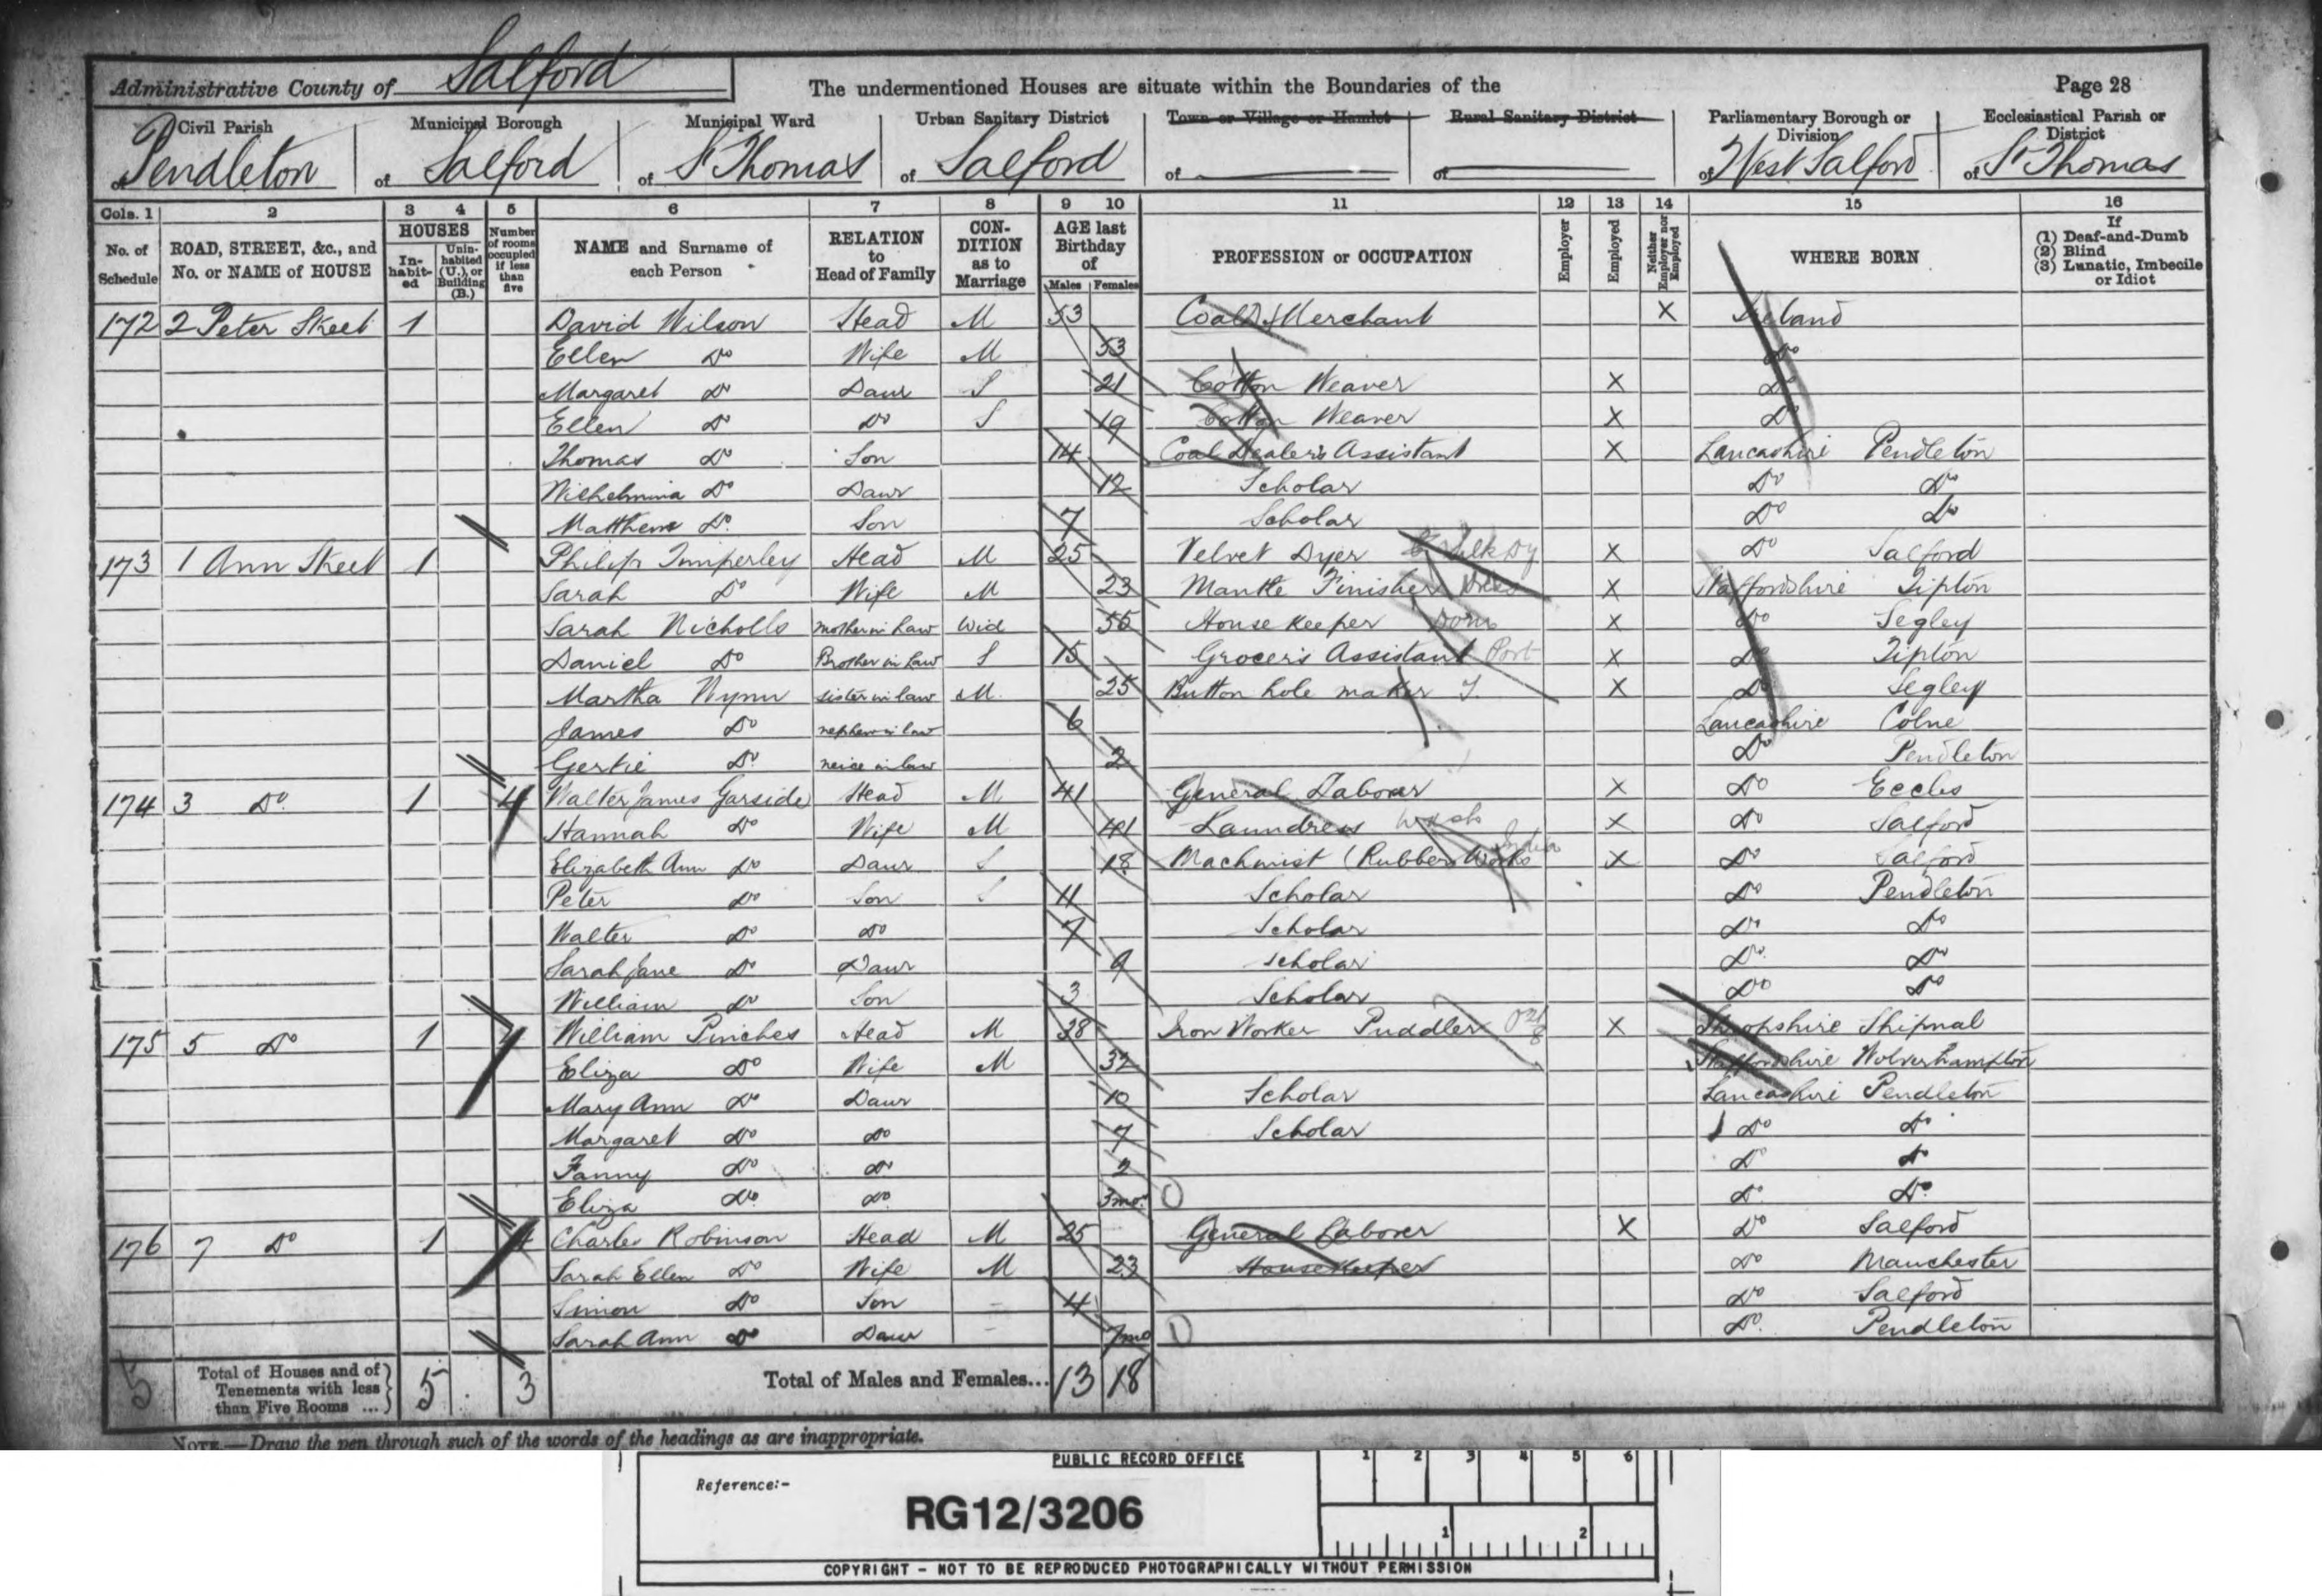 Administrative County of Salford The undermentioned Houses are situate within the Boundaries of the Page 28
Civil Parish Municipal Borough Municipal Ward Urban Sanitary District Town or Village or Hamlet Rural Sanitary District Parliamentary Borough or Division Ecclesiastical Parish or District
of Pendleton of Salford of St Thomas of Salford of of of West Salford of St Thomas
Cols. 1 2 3 4 5 6 7 8 9 10 11 12 13 14 15 16
No. of Schedule ROAD, STREET, &c., and No. or NAME of HOUSE HOUSES In-habit-ed Unin-habited (U.), or Building (B.) Number of rooms occupied if less than five NAME and Surname of each Person RELATION to Head of Family CON-DITION as to Marriage AGE last Birthday of Males Females PROFESSION or OCCUPATION Employer Employed Neither Employer nor Employed WHERE BORN If (1) Deaf-and-Dumb (2) Blind (3) Lunatic, Imbecile or Idiot
172 2 Peter Street 1 David Wilson Head M 53 Coal Merchant X Ireland
Ellen Do Wife M 53 Do
Margaret Do Daur S 21 Cotton Weaver X Do
Ellen Do Do S 19 Cotton Weaver X Do
Thomas Do Son 14 Coal Dealers Assistant X Lancashire Pendleton
Wilhelmina Do Daur 12 Scholar Do Do
Matthew Do Son 7 Scholar Do Do
173 1 Ann Street 1 Philip Timperley Head M 25 Velvet Dyer X Do Salford
Sarah Do Wife M 23 Mantle Finisher X Staffordshire Tipton
Sarah Nicholls mother in Law Wid 56 House Keeper Dom X Do Segley
Daniel Do Brother in Law S 15 Grocers Assistant Port X Do Tipton
Martha Wynn sister in law M 25 Button hole maker T. X Do Segley
James Do nephew in law 6 Lancashire Colne
Gertie Do neice in law 2 Do Pendleton
174 3 Do 1 4 Walter James Garside Head M 41 General Laborer X Do Eccles
Hannah Do Wife M 41 Laundress Wash X Do Salford
Elizabeth Ann Do Daur S 18 Machinist (Rubber Works India X Do Salford
Peter Do Son S 11 Scholar Do Pendleton
Walter Do Do 7 Scholar Do Do
Sarah Jane Do Daur 9 Scholar Do Do
William Do Son 3 Scholar Do Do
175 5 Do 1 4 William Pinches Head M 38 Iron Worker Puddler X Shropshire Shipnal
Eliza Do Wife M 32 Staffordshire Wolverhampton
Mary Ann Do Daur 10 Scholar Lancashire Pendleton
Margaret Do Do 7 Scholar Do Do
Fanny Do Do 2 Do Do
Eliza Do Do 3mo. Do Do
176 7 Do 1 4 Charles Robinson Head M 25 General Laborer X Do Salford
Sarah Ellen Do Wife M 23 Housekeeper Do Manchester
Simon Do Son 4 Do Salford
Sarah Ann Do Daur 7mo Do Pendleton
5 Total of Houses and of Tenements with less than Five Rooms ... 5 3 Total of Males and Females... 13 18
NOTE.—Draw the pen through such of the words of the headings as are inappropriate.
PUBLIC RECORD OFFICE 1 2 3 4 5 6
Reference:-
RG12/3206
1 2
COPYRIGHT - NOT TO BE REPRODUCED PHOTOGRAPHICALLY WITHOUT PERMISSION